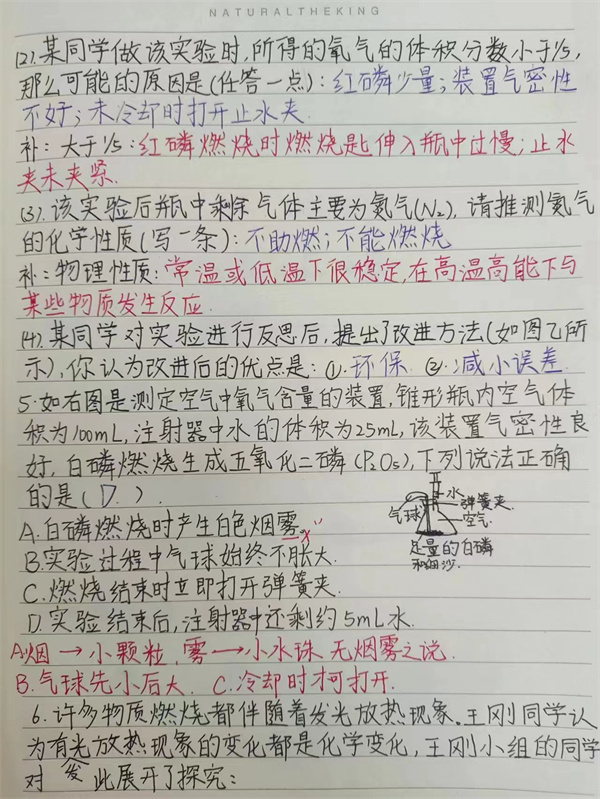 NATURALTHEKING
(2).某同学做该实验时,所得的氧气的体积分数小于1/5,
那么可能的原因是(任答一点):红磷少量;装置气密性
不好;未冷却时打开止水夹.
补:大于1/5:红磷燃烧时燃烧匙伸入瓶中过慢;止水
夹未夹紧.
(3).该实验后瓶中剩余气体主要为氮气(N₂),请推测氮气
的化学性质(写一条):不助燃;不能燃烧
补:物理性质:常温或低温下很稳定,在高温高能下与
某些物质发生反应.
(4).某同学对实验进行反思后,提出了改进方法(如图乙所
示),你认为改进后的优点是:①.环保 ②.减小误差.
5.如右图是测定空气中氧气含量的装置,锥形瓶内空气体
积为100mL,注射器中水的体积为25mL,该装置气密性良
好,白磷燃烧生成五氧化二磷(P₂O₅),下列说法正确
的是(D).
水 弹簧夹.
气球 空气.
足量的白磷
和细沙.
A.白磷燃烧时产生白色烟雾。×
B.实验过程中气球始终不胀大.
C.燃烧结束时立即打开弹簧夹.
D.实验结束后,注射器中还剩约5mL水.
A.烟→小颗粒,雾→小水珠 无烟雾之说.
B.气球先小后大. C.冷却时才可打开.
6.许多物质燃烧都伴随着发光放热现象.王刚同学认
为有光放热现象的变化都是化学变化,王刚小组的同学
对 发 此展开了探究: